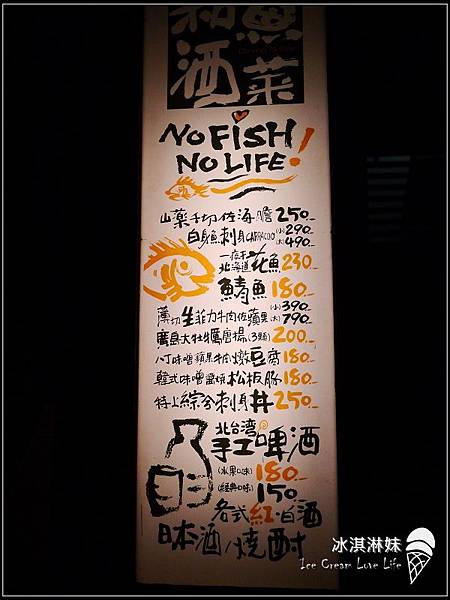 和魚
酒菜
NO FISH
NO LIFE!
山藥手切佐海膽 250.-
白身魚刺身CARPACCIO (小)290.-
(大)490.-
一夜干
北海道 花魚 230.-
鯖魚 180.-
薄切生菲力牛肉佐蘋果 (小)390.-
(大)790.-
廣島大牡蠣唐揚(3顆) 200.-
八丁味噌蘋果牛肉燉豆腐 180.-
韓式味噌醬燒松板豚 180.-
特上綜合刺身丼 250.-
北台灣
手工啤酒
(水果口味) 180.-
(經典口味) 150.-
各式紅.白酒
日本酒/燒酎
冰淇淋妹
Ice Cream Love Life